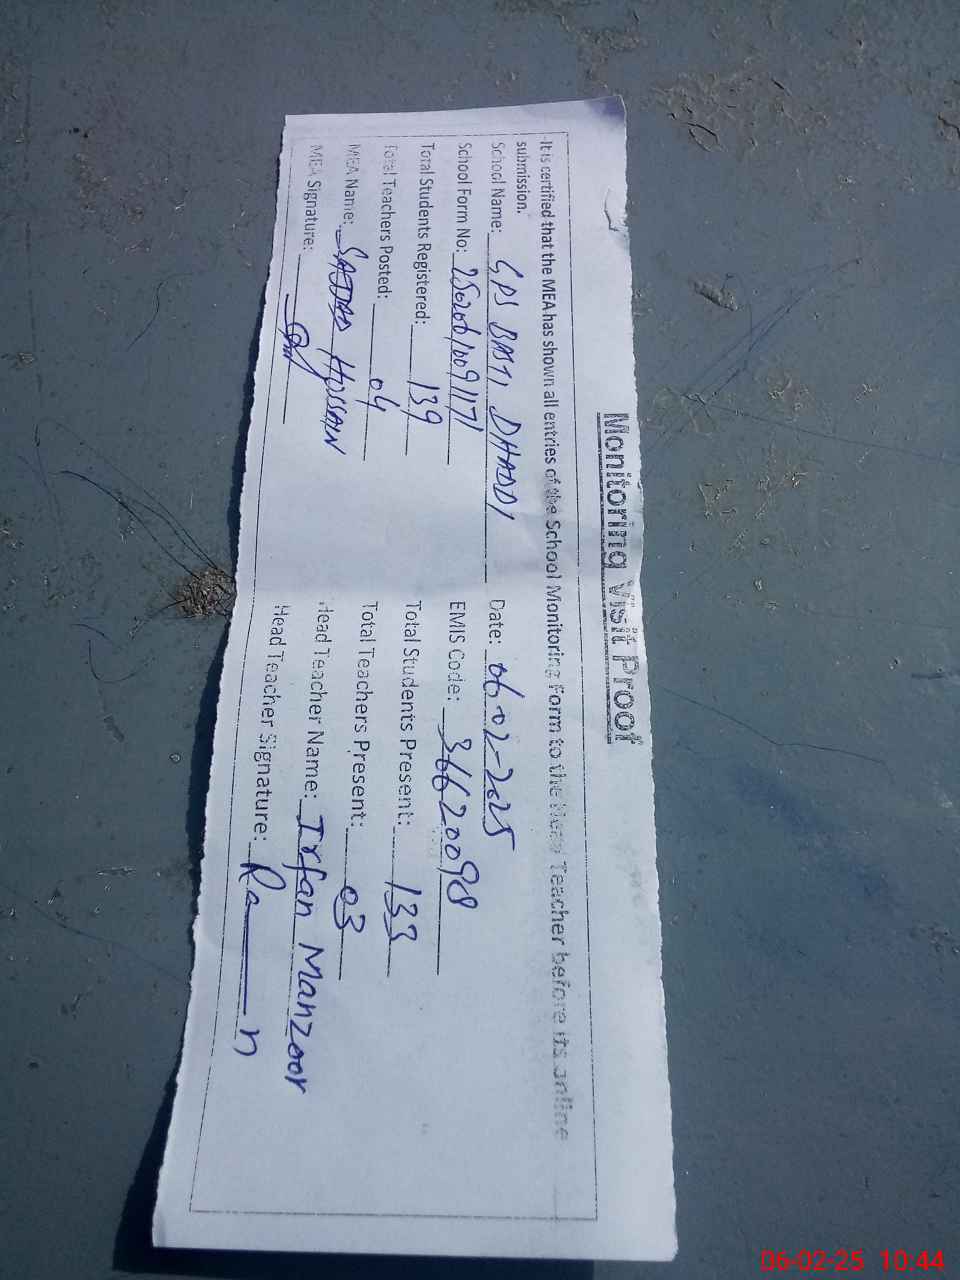 Monitoring Visit Proof
It is certified that the MEA has shown all entries of the School Monitoring Form to the Head Teacher before its online
submission.
School Name: GPS BASTI DHADDI Date: 06-02-2025
School Form No: 25020610091171 EMIS Code: 36620098
Total Students Registered: 139 Total Students Present: 133
Total Teachers Posted: 04 Total Teachers Present: 03
MEA Name: SAJJAD HUSSAIN Head Teacher Name: Irfan Manzoor
MEA Signature: Head Teacher Signature:
06-02-25 10:44